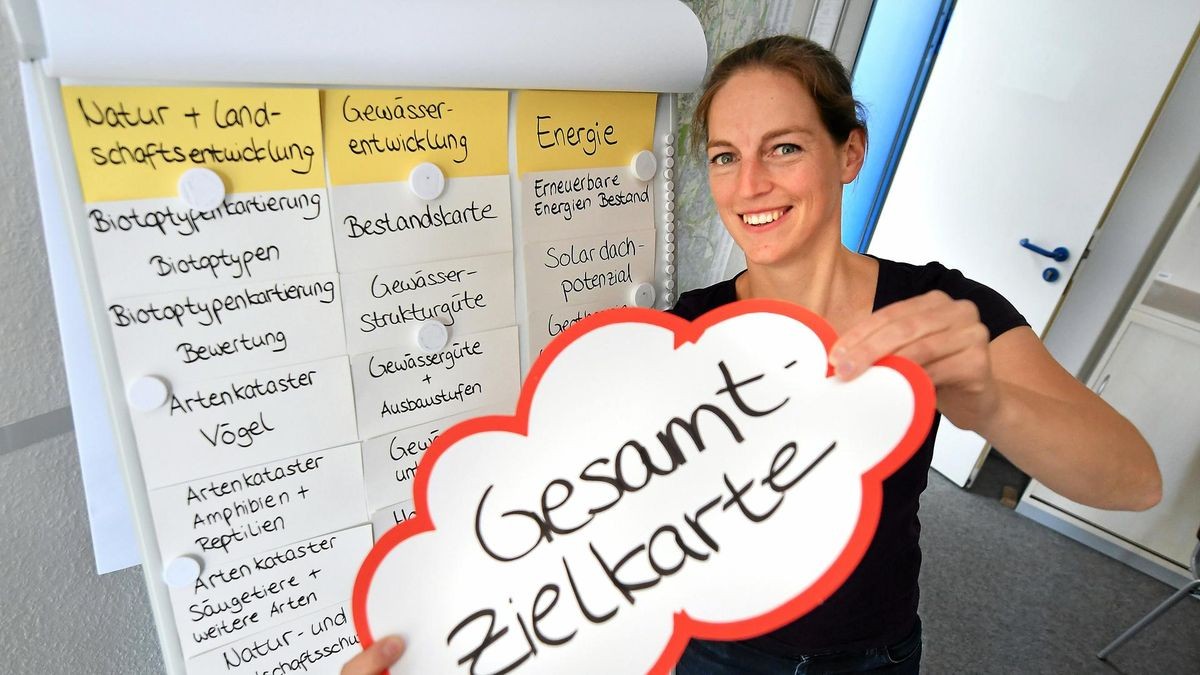 Natur + Land-
schaftsentwicklung
Biotoptypenkartierung
Biotoptypen
Biotoptypenkartierung
Bewertung
Artenkataster
Vögel
Artenkataster
Amphibien +
Reptilien
Artenkataster
Säugetiere +
weitere Arten
Natur- und
Gewässer-
entwicklung
Bestandskarte
Gewässer-
strukturgüte
Gewässergüte
+
Ausbaustufen
Energie
Erneuerbare
Energien Bestand
Solardach-
potenzial
Gesamt-
zielkarte